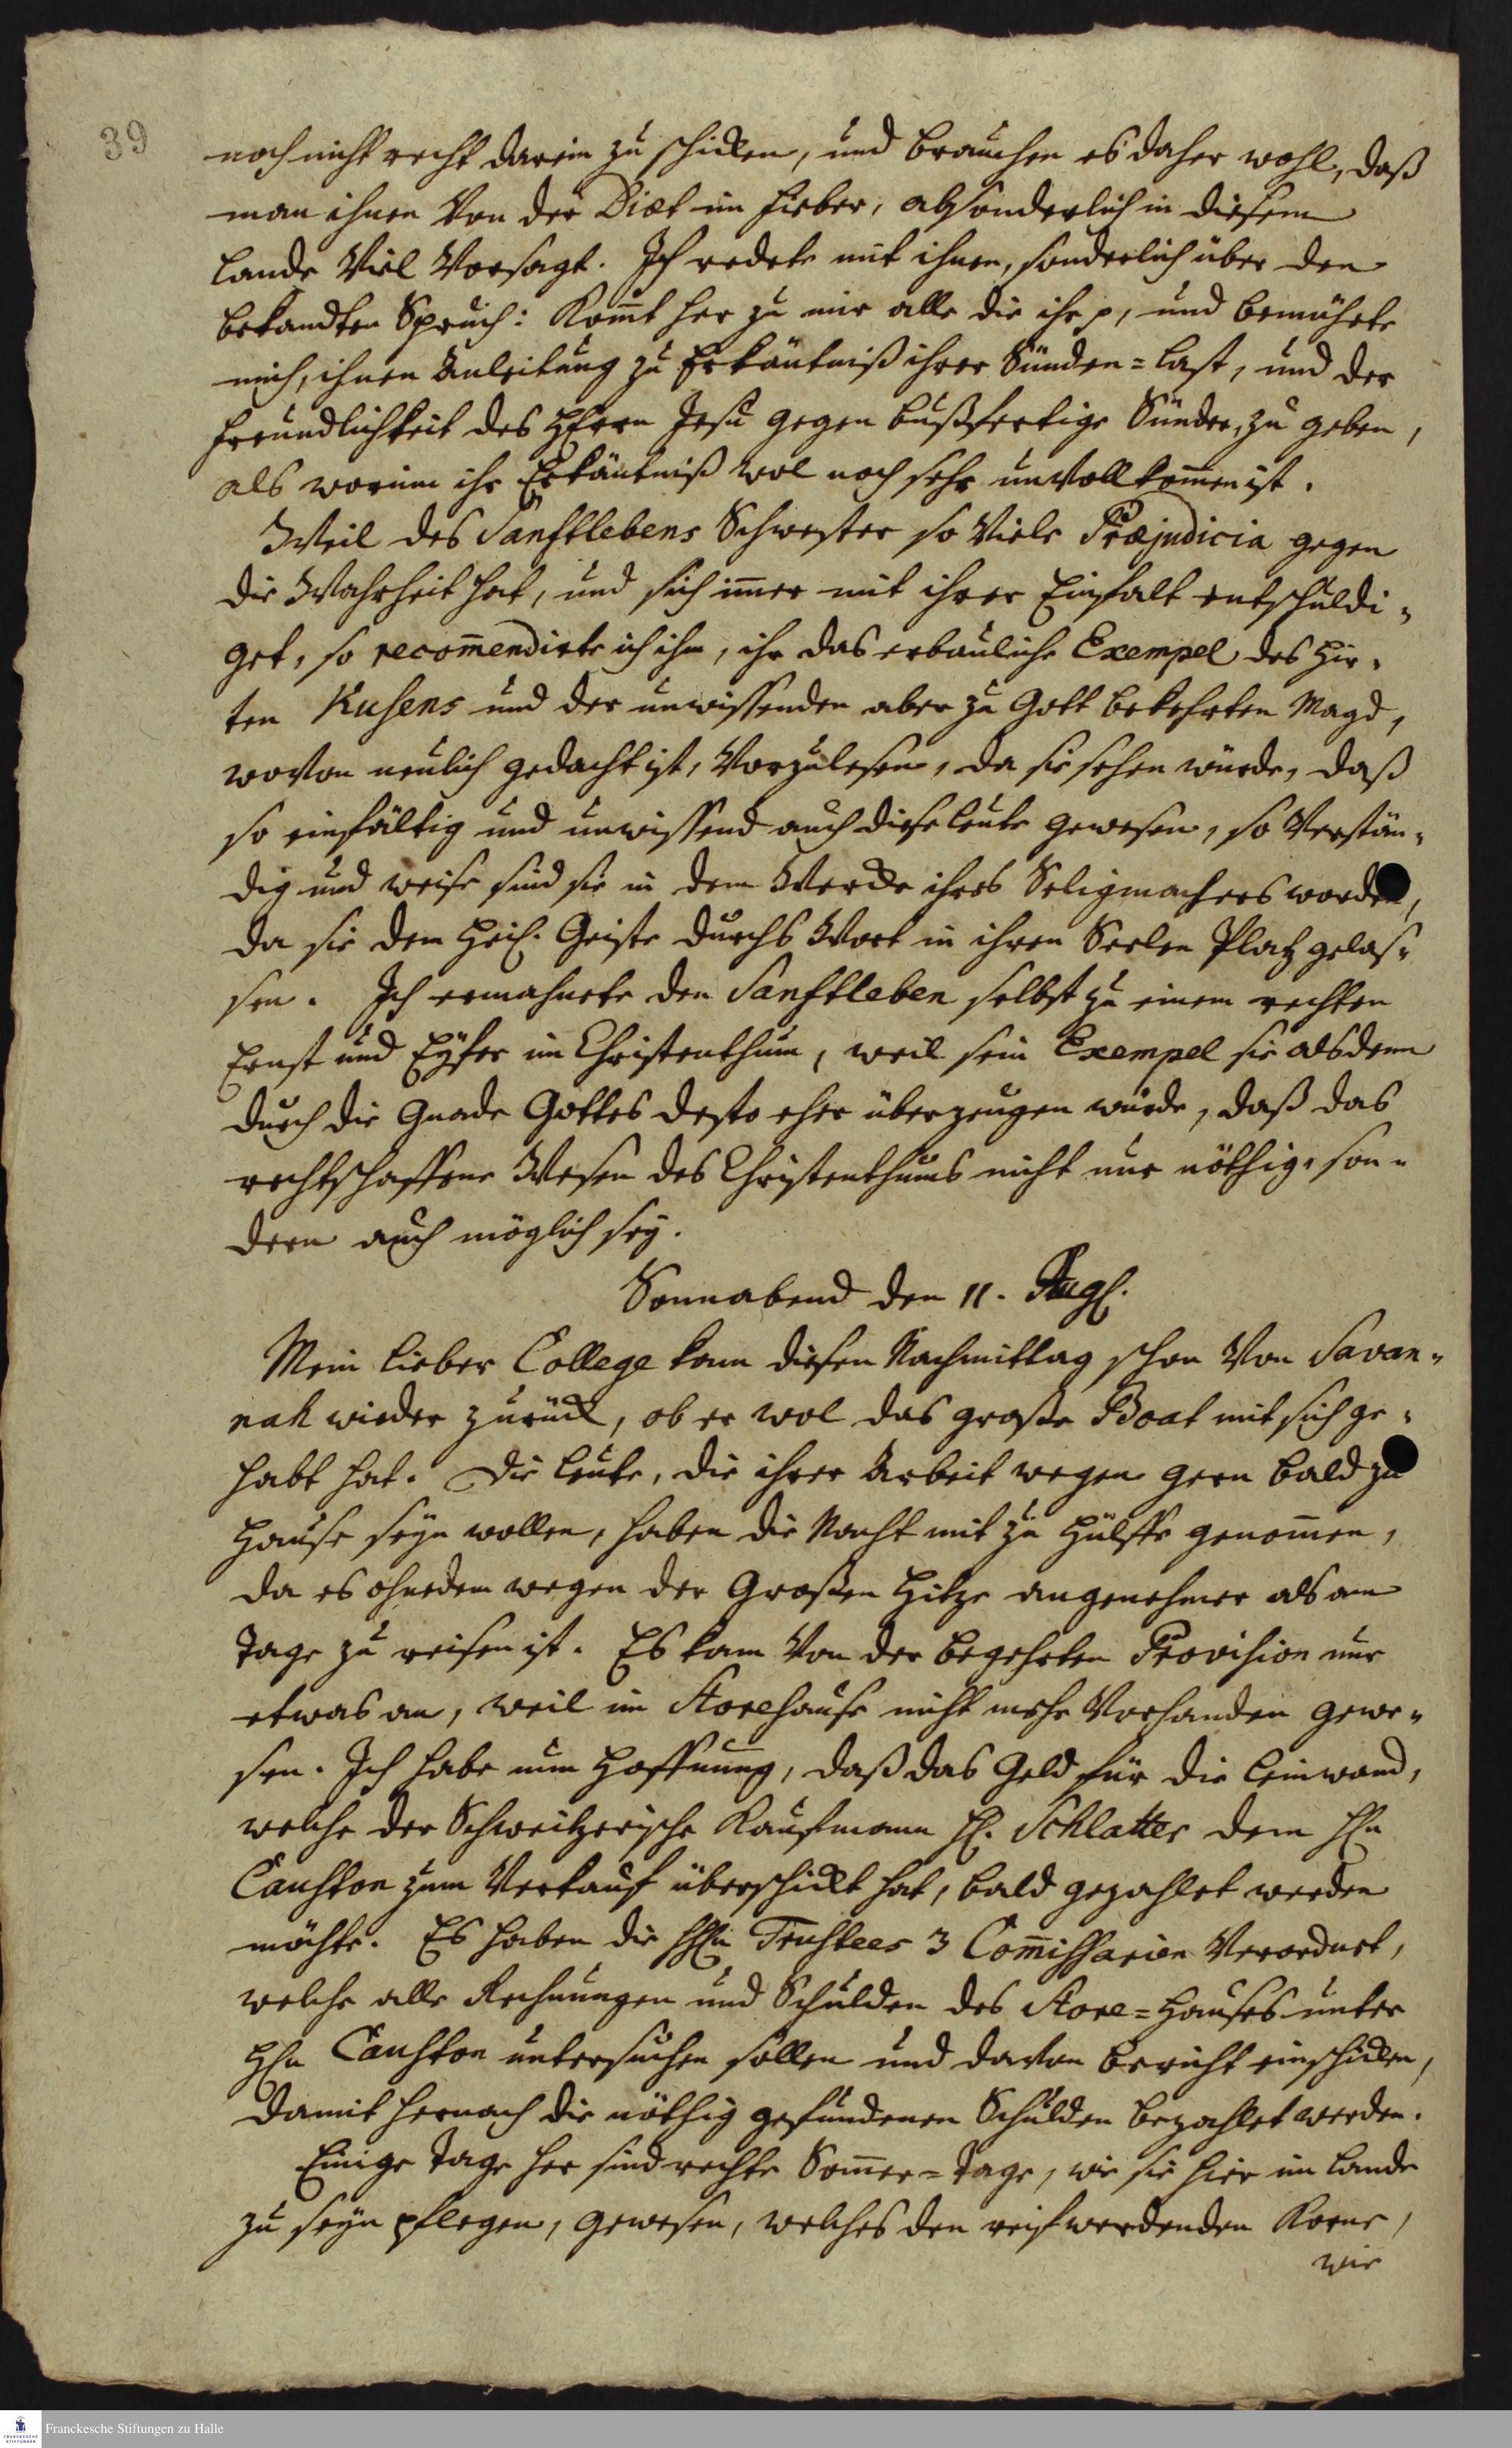 39
noch nicht recht darein zu schicken, und brauchen es daher wohl, daß
man ihnen von der Diæt im Fieber, absonderlich in diesem
Lande viel vorsagt. Ich redete mit ihnen, sonderlich über den
bekandten Spruch: Kom̄t her zu mir alle die ihr p, und bemühete
mich, ihnen Anleitung zu Erkäntniß ihrer Sünden=Last, und der
Freundlichkeit des HErrn Jesu gegen bußfertige Sünder, zu geben,
als worinn ihr Erkäntniß wol noch sehr unvollkom̄en ist.
Weil des Sanftlebens Schwester so viele Præjudicia gegen
die Wahrheit hat, und sich im̄er mit ihrer Einfalt entschuldi=
get, so recom̄endirte ich ihm, ihr das erbauliche Exempel des Hir=
ten Kusens und der unwissenden aber zu Gott bekehrten Magd,
wovon neulich gedacht ist, vorzulesen, da sie sehen würde, daß
so einfältig und unwissend auch diese Leute gewesen, so verstän=
dig und weise sind sie in dem Wercke ihres Seligmachers worden,
da sie dem Heil. Geiste durchs Wort in ihren Seelen Platz gelas=
sen. Ich ermahnete den Sanftleben selbst zu einem rechten
Ernst und Eyfer im Christenthum, weil sein Exempel sie alsdenn
durch die Gnade Gottes desto eher überzeugen würde, daß das
rechtschaffene Wesen des Christenthums nicht nur nöthig, son=
dern auch möglich sey.
Sonnabend den 11. Aug.
Mein lieber College kam diesen Nachmittag schon von Savan=
nah wieder zurück, ob er wol das große Boat mit sich ge=
habt hat. Die Leute, die ihrer Arbeit wegen gern bald zu
Hause seyn wollen, haben die Nacht mit zu Hülffe genom̄en,
da es ohnedem wegen der Großen Hitze angenehmer als am
Tage zu reisen ist. Es kam von der begehrten Provision nur
etwas an, weil im Storehause nicht mehr vorhanden gewe=
sen. Ich habe nun Hoffnung, daß das Geld für die Leinwand,
welche der Schweitzerische Kaufmann H. Schlatter dem Hn
Causton zum Verkauf überschickt hat, bald gezahlet werden
möchte. Es haben die HHn Trustees 3 Com̄issarien verordnet,
welche alle Rechnungen und Schulden des Store=Hauses unter
Hn Causton untersuchen sollen und davon Bericht einschicken,
damit hernach die nöthig gefundenen Schulden bezahlet werden.
Einige Tage her sind rechte Som̄er=Tage, wie sie hier im Lande
zu seyn pflegen, gewesen, welches den reif werdenden Korne,
wie
Franckesche Stiftungen zu Halle